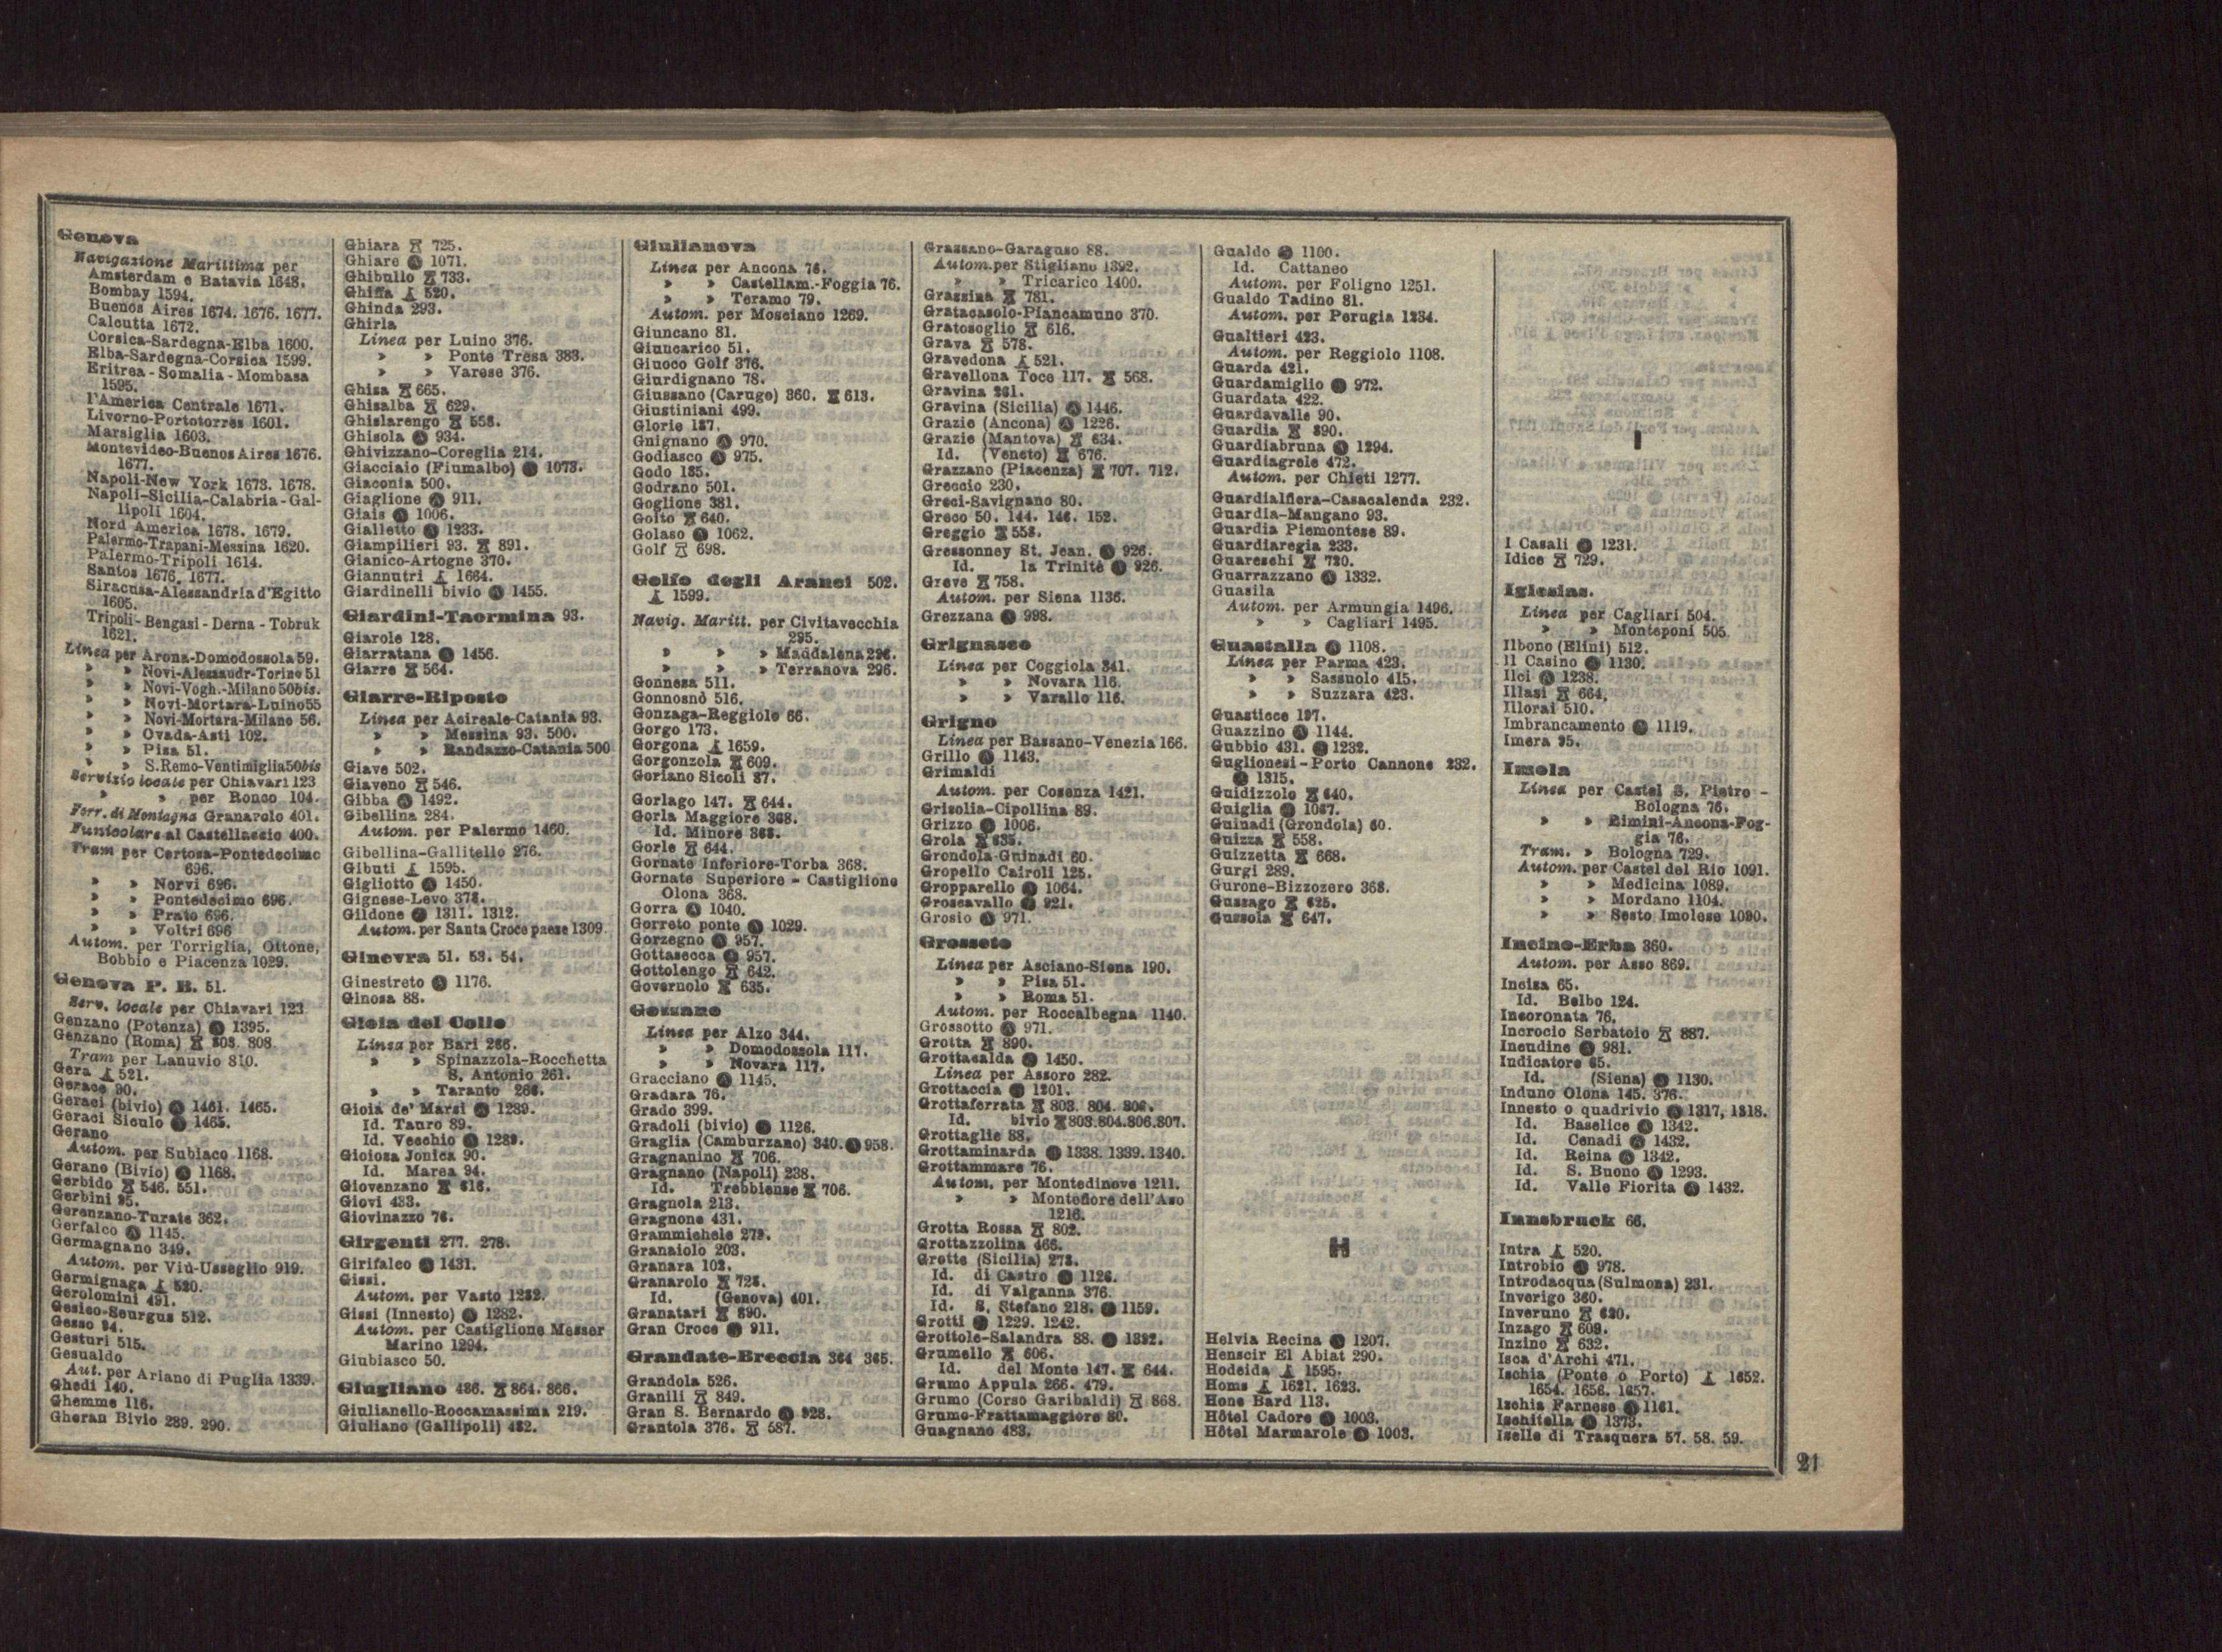 Genova
Navigazione Marittima per
Amsterdam e Batavia 1648.
Bombay 1594.
Buenos Aires 1674. 1676. 1677.
Calcutta 1672.
Corsica-Sardegna-Elba 1600.
Elba-Sardegna-Corsica 1599.
Eritrea - Somalia - Mombasa
1595.
l'America Centrale 1671.
Livorno-Portotorres 1601.
Marsiglia 1603.
Montevideo-Buenos Aires 1676.
1677.
Napoli-New York 1673. 1678.
Napoli-Sicilia-Calabria-Gal-
lipoli 1604.
Nord America 1678. 1679.
Palermo-Trapani-Messina 1620.
Palermo-Tripoli 1614.
Santos 1676. 1677.
Siracusa-Alessandria d'Egitto
1605.
Tripoli-Bengasi-Derna-Tobruk
1621.
Linea per Arona-Domodossola 59.
» » Novi-Alessandr-Torino 51
» » Novi-Vogh.-Milano 50bis.
» » Novi-Mortara-Luino 55
» » Novi-Mortara-Milano 56.
» » Ovada-Asti 102.
» » Pisa 51.
» » S.Remo-Ventimiglia 50bis
Servizio locale per Chiavari 123
» » per Ronco 104.
Ferr. di Montagna Granarolo 401.
Funicolare al Castellaccio 400.
Tram per Certosa-Pontedecimo
696.
» » Nervi 696.
» » Pontedecimo 696.
» » Prato 696.
» » Voltri 696
Autom. per Torriglia, Ottone,
Bobbio e Piacenza 1029.
Genova P. B. 51.
Serv. locale per Chiavari 123
Genzano (Potenza) 1395.
Genzano (Roma) 803. 808.
Tram per Lanuvio 810.
Gera 521.
Gerace 90.
Geraci (bivio) 1461. 1465.
Geraci Siculo 1465.
Gerano
Autom. per Subiaco 1168.
Gerano (Bivio) 1168.
Gerbido 546. 551.
Gerbini 95.
Gerenzano-Turate 362.
Gerfalco 1145.
Germagnano 349.
Autom. per Viù-Usseglio 919.
Germignaga 520.
Gerolomini 491.
Gesico-Seurgus 512.
Gesso 94.
Gesturi 515.
Gesualdo
Aut. per Ariano di Puglia 1339.
Ghedi 140.
Ghemme 116.
Gheran Bivio 289. 290.
Ghiara 725.
Ghiare 1071.
Ghibullo 733.
Ghiffa 520.
Ghinda 293.
Ghirla
Linea per Luino 376.
» » Ponte Tresa 383.
» » Varese 376.
Ghisa 665.
Ghisalba 629.
Ghislarengo 558.
Ghisola 934.
Ghivizzano-Coreglia 214.
Giacciaio (Fiumalbo) 1073.
Giaconia 500.
Giaglione 911.
Giais 1006.
Gialletto 1233.
Giampilieri 93. 891.
Gianico-Artogne 370.
Giannutri 1664.
Giardinelli bivio 1455.
Giardini-Taormina 93.
Giarole 128.
Giarratana 1456.
Giarre 564.
Giarre-Riposto
Linea per Acireale-Catania 93.
» » Messina 93. 500.
» » Randazzo-Catania 500
Giave 502.
Giaveno 546.
Gibba 1492.
Gibellina 284.
Autom. per Palermo 1460.
Gibellina-Gallitello 276.
Gibuti 1595.
Gigliotto 1450.
Gignese-Levo 378.
Gildone 1311. 1312.
Autom. per Santa Croce paese 1309.
Ginevra 51. 53. 54.
Ginestreto 1176.
Ginosa 88.
Gioia del Colle
Linea per Bari 266.
» » Spinazzola-Rocchetta
S. Antonio 261.
» » Taranto 266.
Gioia de' Marsi 1289.
Id. Tauro 89.
Id. Vecchio 1289.
Gioiosa Jonica 90.
Id. Marea 94.
Giovenzano 616.
Giovi 433.
Giovinazzo 76.
Girgenti 277. 278.
Girifalco 1431.
Gissi.
Autom. per Vasto 1282.
Gissi (Innesto) 1282.
Autom. per Castiglione Messer
Marino 1294.
Giubiasco 50.
Giugliano 486. 864. 866.
Giulianello-Roccamassima 219.
Giuliano (Gallipoli) 482.
Giulianova
Linea per Ancona 76.
» » Castellam.-Foggia 76.
» » Teramo 79.
Autom. per Mosciano 1269.
Giuncano 81.
Giuncarico 51.
Giuoco Golf 376.
Giurdignano 78.
Giussano (Carugo) 360. 613.
Giustiniani 499.
Glorie 187.
Gnignano 970.
Godiasco 975.
Godo 185.
Godrano 501.
Goglione 381.
Goito 640.
Golaso 1062.
Golf 698.
Golfo degli Aranci 502.
1599.
Navig. Maritt. per Civitavecchia
295.
» » » Maddalena 296.
» » » Terranova 296.
Gonnesa 511.
Gonnosnò 516.
Gonzaga-Reggiolo 66.
Gorgo 173.
Gorgona 1659.
Gorgonzola 609.
Goriano Sicoli 87.
Gorlago 147. 644.
Gorla Maggiore 368.
Id. Minore 368.
Gorle 644.
Gornate Inferiore-Torba 368.
Gornate Superiore - Castiglione
Olona 368.
Gorra 1040.
Gorreto ponte 1029.
Gorzegno 957.
Gottasecca 957.
Gottolengo 642.
Governolo 635.
Gozzano
Linea per Alzo 344.
» » Domodossola 117.
» » Novara 117.
Gracciano 1145.
Gradara 76.
Grado 399.
Gradoli (bivio) 1126.
Graglia (Camburzano) 340. 958.
Gragnanino 706.
Gragnano (Napoli) 238.
Id. Trebbiense 706.
Gragnola 213.
Gragnone 431.
Grammichele 279.
Granaiolo 203.
Granara 102.
Granarolo 728.
Id. (Genova) 401.
Granatari 890.
Gran Croce 911.
Grandate-Breccia 364 365.
Grandola 526.
Granili 849.
Gran S. Bernardo 928.
Grantola 376. 587.
Grassano-Garaguso 88.
Autom. per Stigliano 1392.
» » Tricarico 1400.
Grassina 781.
Gratacasolo-Piancamuno 370.
Gratosoglio 616.
Grava 578.
Gravedona 521.
Gravellona Toce 117. 568.
Gravina 261.
Gravina (Sicilia) 1446.
Grazie (Ancona) 1226.
Grazie (Mantova) 634.
Id. (Veneto) 676.
Grazzano (Piacenza) 707. 712.
Greccio 230.
Greci-Savignano 80.
Greco 50. 144. 146. 152.
Greggio 558.
Gressonney St. Jean. 926.
Id. la Trinité 926.
Greve 758.
Autom. per Siena 1136.
Grezzana 998.
Grignasco
Linea per Coggiola 341.
» » Novara 116.
» » Varallo 116.
Grigno
Linea per Bassano-Venezia 166.
Grillo 1143.
Grimaldi
Autom. per Cosenza 1421.
Grisolia-Cipollina 89.
Grizzo 1006.
Grola 635.
Grondola-Guinadi 60.
Gropello Cairoli 125.
Gropparello 1064.
Groscavallo 921.
Grosio 971.
Grosseto
Linea per Asciano-Siena 190.
» » Pisa 51.
» » Roma 51.
Autom. per Roccalbegna 1140.
Grossotto 971.
Grotta 890.
Grottacalda 1450.
Linea per Assoro 282.
Grottaccia 1201.
Grottaferrata 803. 804. 806.
Id. bivio 803.804.806.807.
Grottaglie 88.
Grottaminarda 1338. 1339. 1340.
Grottammare 76.
Autom. per Montedinove 1211.
» » Montefiore dell'Aso
1216.
Grotta Rossa 802.
Grottazzolina 466.
Grotte (Sicilia) 278.
Id. di Castro 1126.
Id. di Valganna 376.
Id. S. Stefano 218. 1159.
Grotti 1229. 1242.
Grottole-Salandra 88. 1392.
Grumello 606.
Id. del Monte 147. 644.
Grumo Appula 266. 479.
Grumo (Corso Garibaldi) 868.
Grumo-Frattamaggiore 80.
Guagnano 483.
Gualdo 1100.
Id. Cattaneo
Autom. per Foligno 1251.
Gualdo Tadino 81.
Autom. per Perugia 1234.
Gualtieri 423.
Autom. per Reggiolo 1108.
Guarda 421.
Guardamiglio 972.
Guardata 422.
Guardavalle 90.
Guardia 890.
Guardiabruna 1294.
Guardiagrele 472.
Autom. per Chieti 1277.
Guardialfiera-Casacalenda 232.
Guardia-Mangano 93.
Guardia Piemontese 89.
Guardiaregia 233.
Guareschi 720.
Guarrazzano 1332.
Guasila
Autom. per Armungia 1496.
» » Cagliari 1495.
Guastalla 1108.
Linea per Parma 423.
» » Sassuolo 415.
» » Suzzara 423.
Guasticce 197.
Guazzino 1144.
Gubbio 431. 1232.
Guglionesi - Porto Cannone 232.
1315.
Guidizzolo 640.
Guiglia 1087.
Guinadi (Grondola) 60.
Guizza 558.
Guizzetta 668.
Gurgi 289.
Gurone-Bizzozero 368.
Gussago 625.
Gussola 647.
H
Helvia Recina 1207.
Henscir El Abiat 290.
Hodeida 1595.
Homs 1621. 1623.
Hone Bard 113.
Hôtel Cadore 1003.
Hôtel Marmarole 1003.
I
I Casali 1231.
Idice 729.
Iglesias.
Linea per Cagliari 504.
» » Monteponi 505.
Ilbono (Elini) 512.
Il Casino 1130.
Ilci 1238.
Illasi 664.
Illorai 510.
Imbrancamento 1119.
Imera 95.
Imola
Linea per Castel S. Pietro -
Bologna 76.
» » Rimini-Ancona-Fog-
gia 76.
Tram. » Bologna 729.
Autom. per Castel del Rio 1091.
» » Medicina 1089.
» » Mordano 1104.
» » Sesto Imolese 1090.
Incino-Erba 360.
Autom. per Asso 869.
Incisa 65.
Id. Belbo 124.
Incoronata 76.
Incrocio Serbatoio 887.
Incudine 981.
Indicatore 65.
Id. (Siena) 1130.
Induno Olona 145. 376.
Innesto o quadrivio 1317, 1318.
Id. Baselice 1342.
Id. Cenadi 1432.
Id. Reina 1342.
Id. S. Buono 1293.
Id. Valle Fiorita 1432.
Innsbruck 66.
Intra 520.
Introbio 978.
Introdacqua (Sulmona) 231.
Inverigo 360.
Inveruno 620.
Inzago 609.
Inzino 632.
Isca d'Archi 471.
Ischia (Ponte o Porto) 1652.
1654. 1656. 1657.
Ischia Farnese 1161.
Ischitella 1373.
Iselle di Trasquera 57. 58. 59.
21